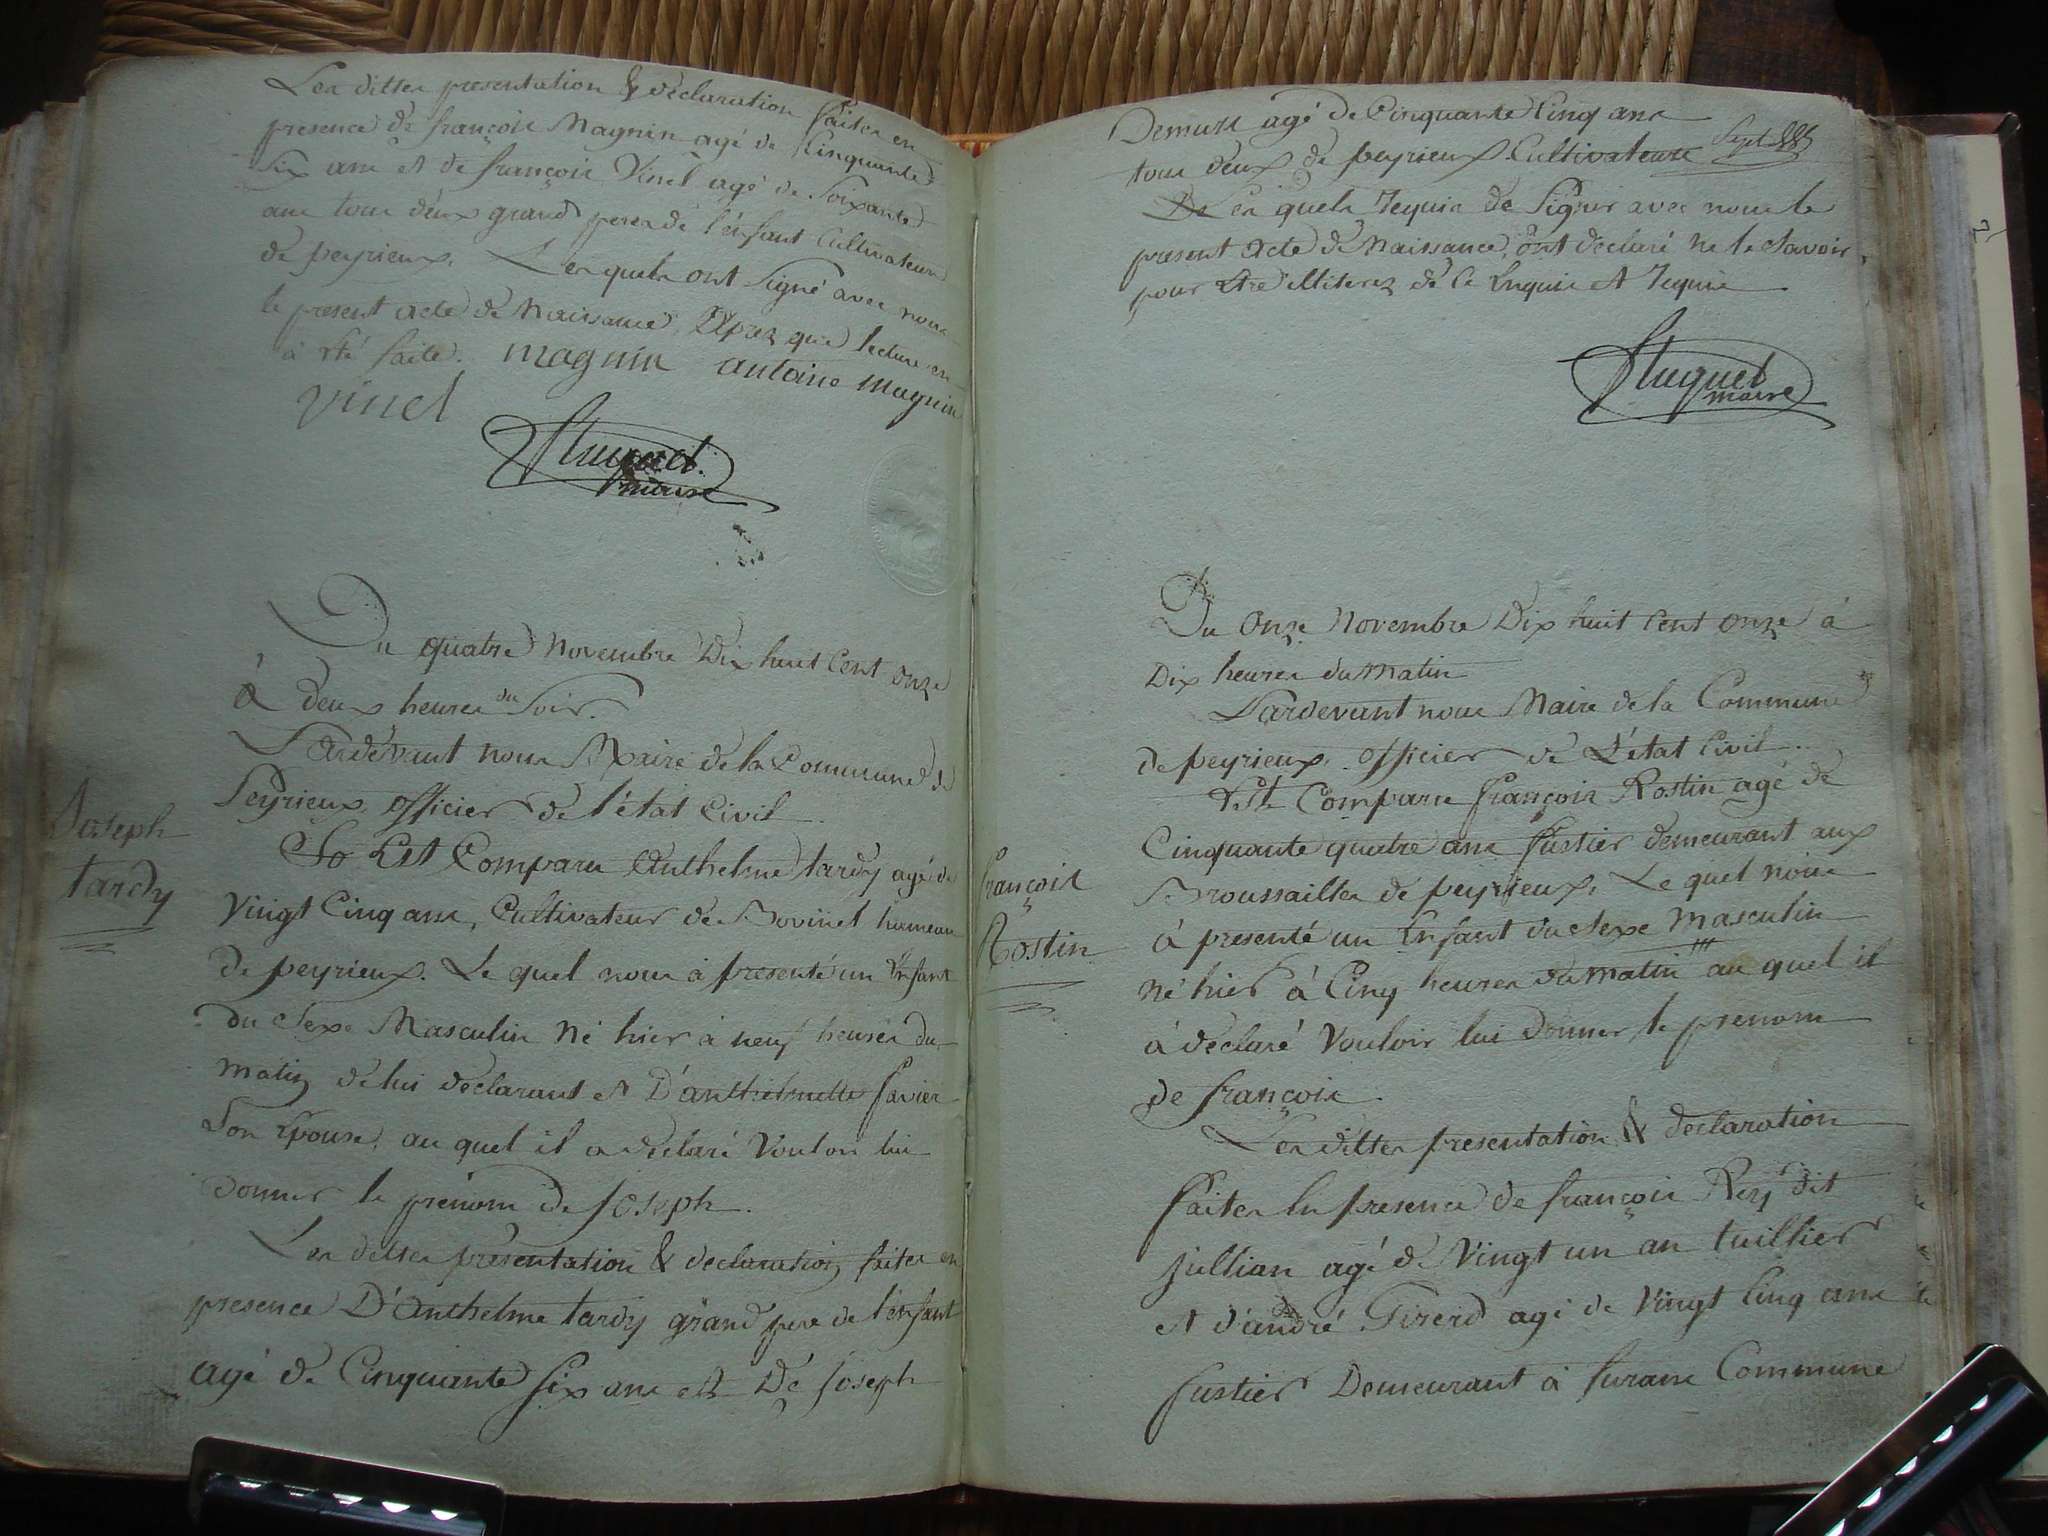 Les dittes presentation & declaration faites en
presence de françois Magnin agé de Cinquante
Six ans et de françois Vinet agé de Soixante
ans tous deux grand peres de l'énfant Cultivateurs
de peyrieux. Les quels ont Signé avec nous
le present acte de Naissance, Aprez que lecture en
à été faite. magnin antoine magnin
vinet
Huguet
maire
Du quatre Novembre Dix huit Cent onze
à deux heures du Soir.
Pardevant nous Maire de la Commune de
Peyrieux officier de l'état Civil
Joseph
tardy
Est Comparu Anthelme tardy agé de
Vingt Cinq ans, Cultivateur de Bovinel hameau
de peyrieux. Le quel nous à presenté un Enfant
du Sexe Masculin Né hier à neuf heures du
matin de lui declarant et D'anthelmette favier
Son Epouse, au quel il a declaré Vouloir lui
donner le prénom de Joseph.
Les dittes présentation & declaration faites en
presence D'Anthelme tardy grand pere de l'énfant
agé de Cinquante Six ans et De Joseph
Demurs agé de Cinquante Cinq ans
Sept
tous deux de peyrieux Cultivateurs
Les quels requis de Signer avec nous le
present acte de Naissance, ont declaré Ne le Savoir
pour Etre illiterez de ce Enquis et requis
Huguet
maire
Du Onze Novembre Dix huit Cent onze à
Dix heures du Matin
Pardevant nous Maire de la Commune
de peyrieux officier de L'état Civil.
françois
Rostin
Est Comparu françois Rostin agé de
Cinquante quatre ans fustier demeurant aux
Broussailles de peyrieux, Le quel nous
à presenté un Enfant du Sexe Masculin
Né hier à Cinq heures du matin au quel il
à declaré Vouloir lui donner le prenom
de françois.
Les dittes presentation & declaration
faites En presence de françois Rey dit
jullian agé de Vingt un an tuillier
et d'andré Girerd agé de Vingt Cinq ans
fustier Demeurant à Surans Commune